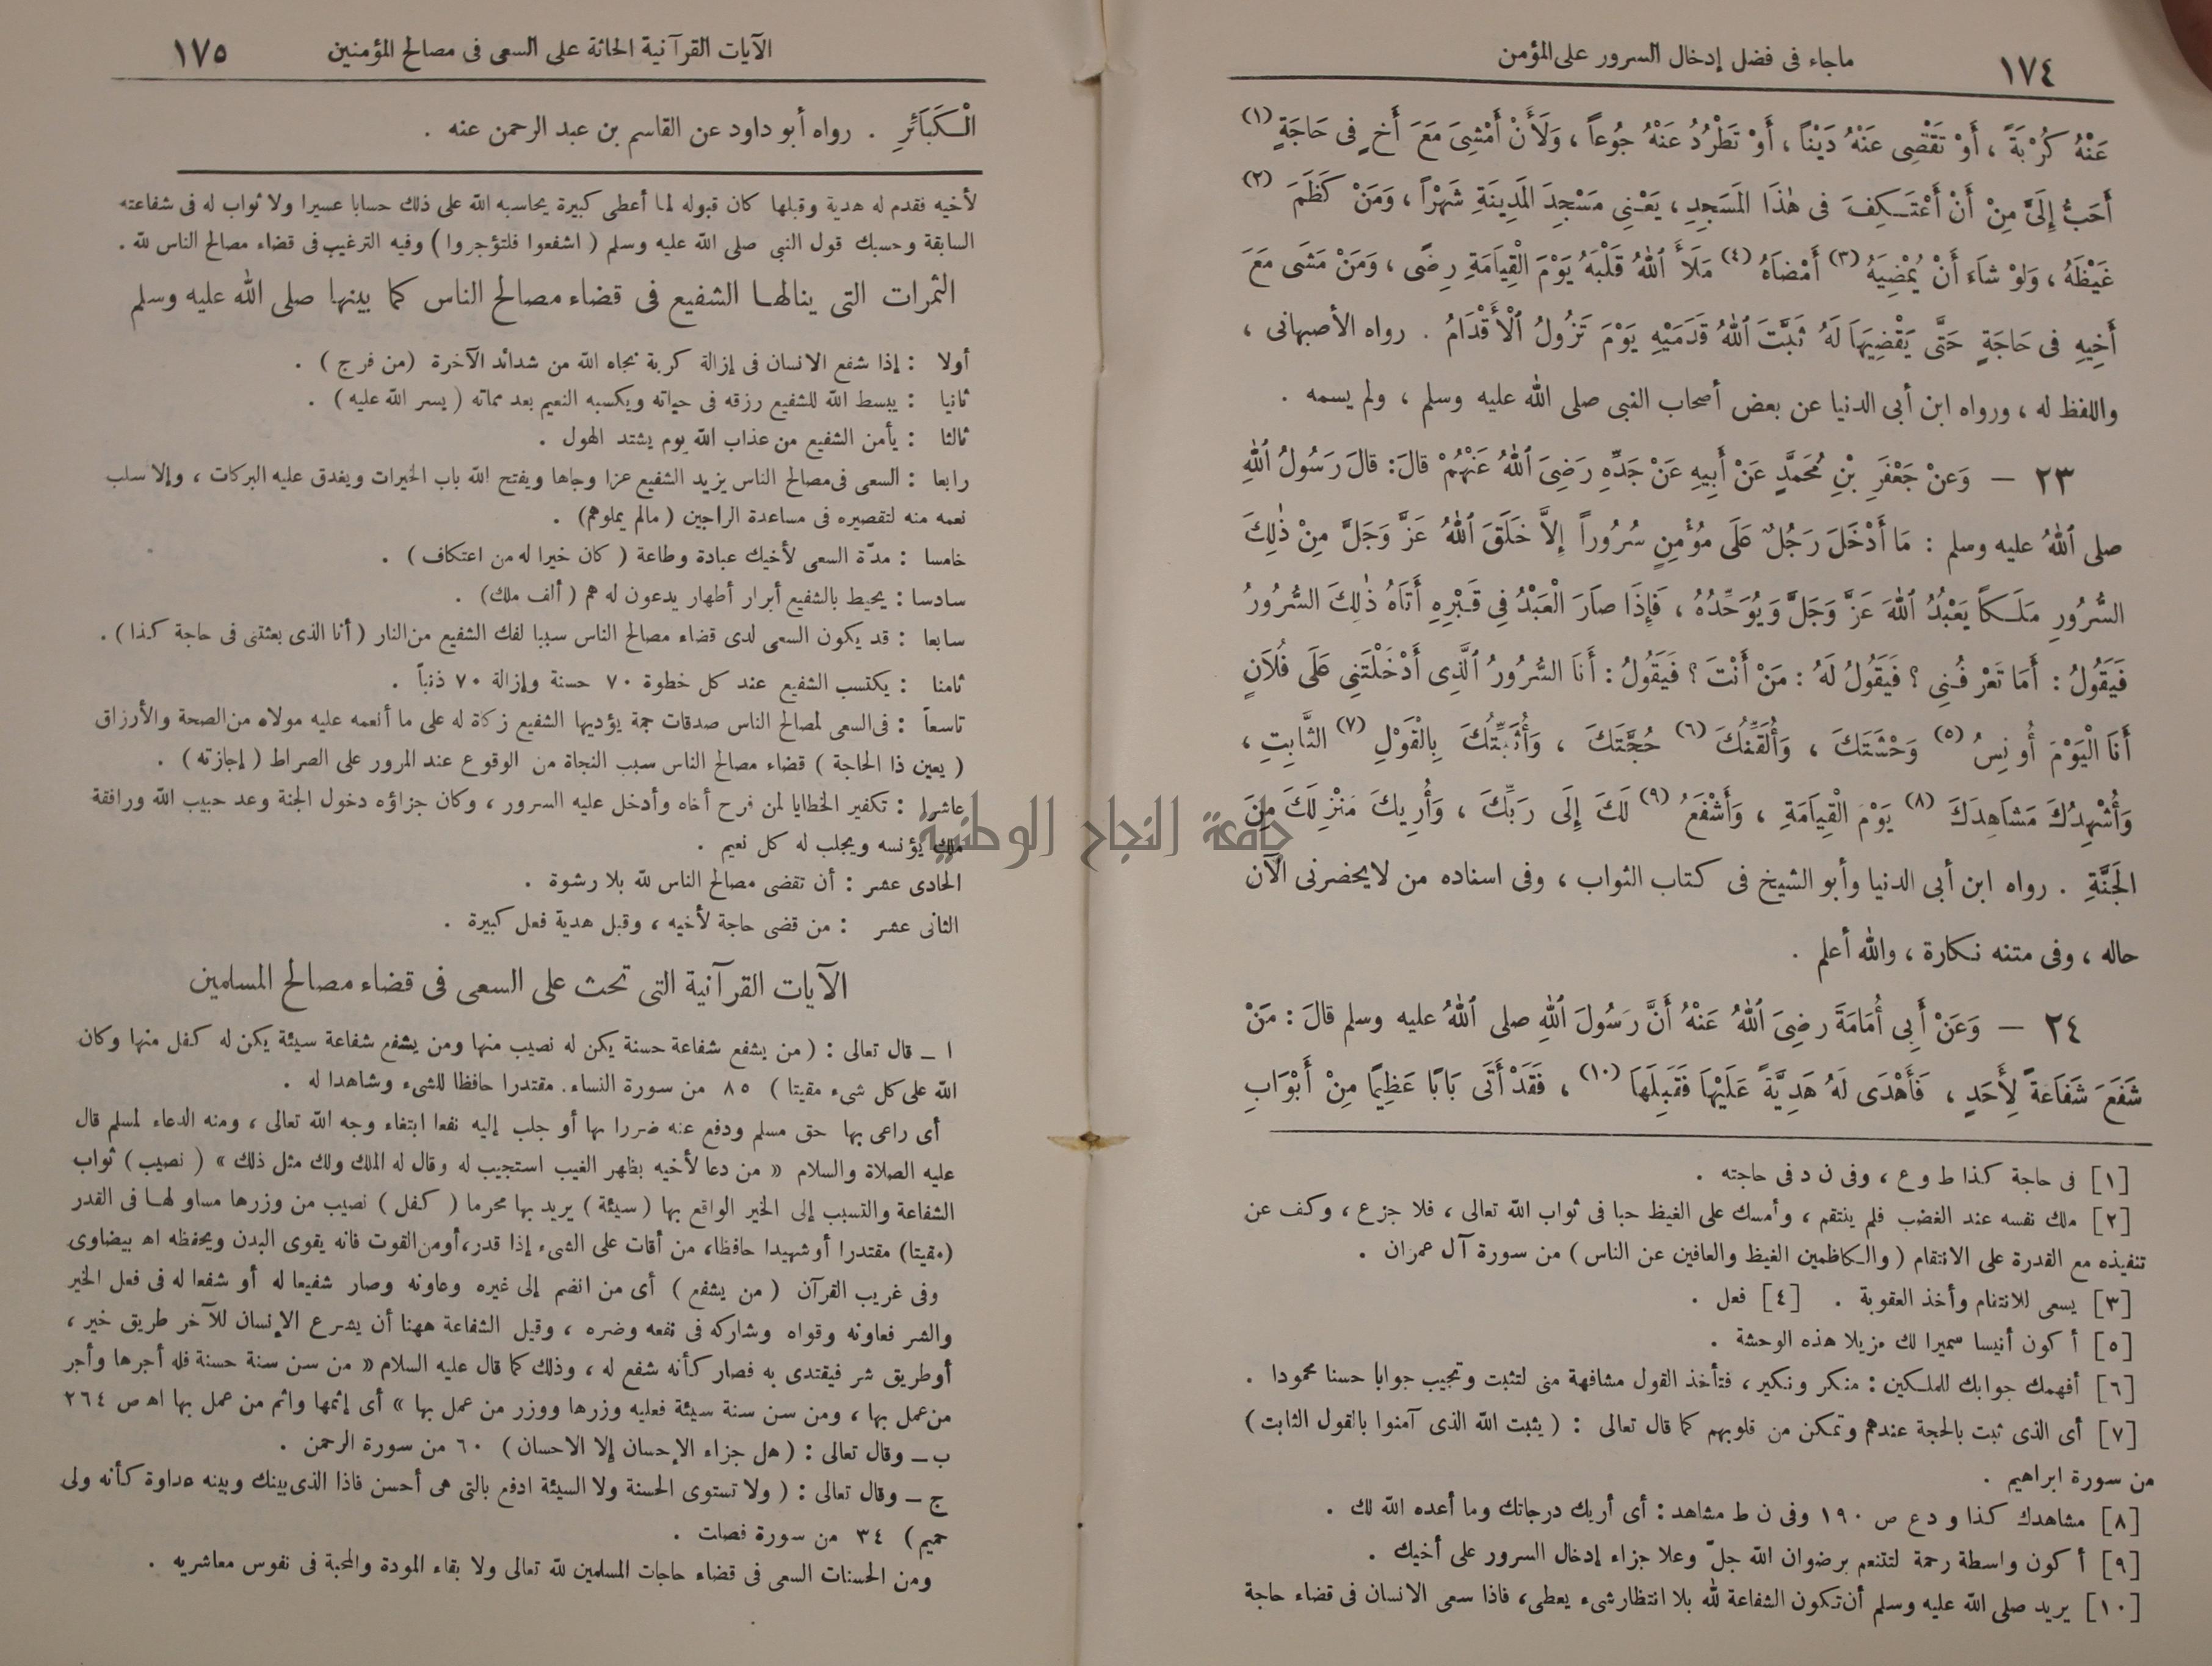 ١٧٤ ماجاء فى فضل إدخال السرور على المؤمن
عَنْهُ كُرْبَةً ، أَوْ تَقْضِى عَنْهُ دَيْنًا ، أَوْ تَطْرُدُ عَنْهُ جُوعاً ، وَلَأَنْ أَمْشِىَ مَعَ أَخٍ فِى حَاجَةٍ (١)
أَحَبُّ إِلَىَّ مِنْ أَنْ أَعْتَكِفَ فى هٰذَا المَسْجِدِ ، يَعْنِى مَسْجِدَ المَدِينَةِ شَهْرًا ، وَمَنْ كَظَمَ (٢)
غَيْظَهُ ، وَلَوْ شاءَ أَنْ يُمْضِيَهُ (٣) أَمْضَاهُ (٤) مَلَأَ اللهُ قَلْبَهُ يَوْمَ الْقِيَامَةِ رِضًى ، وَمَنْ مَشَى مَعَ
أَخِيهِ فى حَاجَةٍ حَتَّى يَقْضِيَهَا لَهُ ثَبَّتَ اللهُ قَدَمَيْهِ يَوْمَ تَزُولُ الْأَقْدَامُ . رواه الأصبهانى ،
واللفظ له ، ورواه ابن أبى الدنيا عن بعض أصحاب النبى صلى الله عليه وسلم ، ولم يسمه .
٢٣ — وَعَنْ جَعْفَرِ بْنِ مُحَمَّدٍ عَنْ أَبِيهِ عَنْ جَدِّهِ رَضِىَ اللهُ عَنْهُمْ قالَ : قالَ رَسُولُ اللهِ
صلى اللهُ عليه وسلم : مَا أَدْخَلَ رَجُلٌ عَلَى مُؤْمِنٍ سُرُوراً إِلاَّ خَلَقَ اللهُ عَزَّ وَجَلَّ مِنْ ذٰلِكَ
السُّرُورِ مَلَكاً يَعْبُدُ اللهَ عَزَّ وَجَلَّ وَيُوَحِّدُهُ ، فَإِذَا صَارَ الْعَبْدُ فِى قَبْرِهِ أَتَاهُ ذٰلِكَ السُّرُورُ
فَيَقُولُ : أَمَا تَعْرِفُنِى ؟ فَيَقُولُ لَهُ : مَنْ أَنْتَ ؟ فَيَقُولُ : أَنَا السُّرُورُ الَّذِى أَدْخَلْتَنِى عَلَى فُلَانٍ
أَنَا الْيَوْمَ أُونِسُ (٥) وَحْشَتَكَ ، وَأُلَقِّنُكَ (٦) حُجَّتَكَ ، وَأُثَبِّتُكَ بِالْقَوْلِ (٧) الثَّابِتِ ،
وَأُشْهِدُكَ مَشَاهِدَكَ (٨) يَوْمَ الْقِيَامَةِ ، وَأَشْفَعُ (٩) لَكَ إِلَى رَبِّكَ ، وَأُرِيكَ مَنْزِلَكَ مِنَ
الجَنَّةِ . رواه ابن أبى الدنيا وأبو الشيخ فى كتاب الثواب ، وفى اسناده من لايحضرنى الآن
حاله ، وفى متنه نكارة ، والله أعلم .
٢٤ — وَعَنْ أَبِى أُمَامَةَ رضِىَ اللهُ عَنْهُ أَنَّ رَسُولَ اللهِ صلى اللهُ عليه وسلم قالَ : مَنْ
شَفَعَ شَفَاعَةً لِأَحَدٍ ، فَأَهْدَى لَهُ هَدِيَّةً عَلَيْهَا فَقَبِلَهَا (١٠) ، فَقَدْ أَتَى بَابًا عَظِيمًا مِنْ أَبْوَابِ
[١] فى حاجة كذا ط وع ، وفى ن د فى حاجته .
[٢] ملك نفسه عند الغضب فلم ينتقم ، وأمسك على الغيظ حبا فى ثواب الله تعالى ، فلا جزع ، وكف عن
تنفيذه مع القدرة على الانتقام (والكاظمين الغيظ والعافين عن الناس) من سورة آل عمران .
[٣] يسعى للانتقام وأخذ العقوبة . [٤] فعل .
[٥] أكون أنيسا سميرا لك مزيلا هذه الوحشة .
[٦] أفهمك جوابك للملكين : منكر ونكير ، فتأخذ القول مشافهة منى لتثبت وتجيب جوابا حسنا محمودا .
[٧] أى الذى ثبت بالحجة عندهم وتمكن من قلوبهم كما قال تعالى : (يثبت الله الذى آمنوا بالقول الثابت)
من سورة ابراهيم .
[٨] مشاهدك كذا و د ع ص ١٩٠ وفى ن ط مشاهد : أى أريك درجاتك وما أعده الله لك .
[٩] أكون واسطة رحمة لتتنعم برضوان الله جلّ وعلا جزاء إدخال السرور على أخيك .
[١٠] يريد صلى الله عليه وسلم أن تكون الشفاعة لله بلا انتظار شىء يعطى ، فاذا سعى الانسان فى قضاء حاجة
الآيات القرآنية الحاثة على السعى فى مصالح المؤمنين ١٧٥
الْكَبَائِرِ . رواه أبو داود عن القاسم بن عبد الرحمن عنه .
لأخيه فقدم له هدية وقبلها كان قبوله لما أعطى كبيرة يحاسبه الله على ذلك حسابا عسيرا ولا ثواب له فى شفاعته
السابقة وحسبك قول النبى صلى الله عليه وسلم (اشفعوا فلتؤجروا) وفيه الترغيب فى قضاء مصالح الناس لله .
الثمرات التى ينالها الشفيع فى قضاء مصالح الناس كما بينها صلى الله عليه وسلم
أولا : إذا شفع الانسان فى إزالة كربة نجاه الله من شدائد الآخرة (من فرج) .
ثانيا : يبسط الله للشفيع رزقه فى حياته ويكسبه النعيم بعد مماته (يسر الله عليه) .
ثالثا : يأمن الشفيع من عذاب الله يوم يشتد الهول .
رابعا : السعى فى مصالح الناس يزيد الشفيع عزا وجاها ويفتح الله باب الخيرات ويغدق عليه البركات ، وإلا سلب
نعمه منه لتقصيره فى مساعدة الراجين (مالم يملوهم) .
خامسا : مدّة السعى لأخيك عبادة وطاعة (كان خيرا له من اعتكاف) .
سادسا : يحيط بالشفيع أبرار أطهار يدعون له هم (ألف ملك) .
سابعا : قد يكون السعى لدى قضاء مصالح الناس سببا لفك الشفيع من النار (أنا الذى بعثتنى فى حاجة كذا) .
ثامنا : يكتسب الشفيع عند كل خطوة ٧٠ حسنة وإزالة ٧٠ ذنباً .
تاسعاً : فى السعى لمصالح الناس صدقات جمة يؤديها الشفيع زكاة له على ما أنعمه عليه مولاه من الصحة والأرزاق
(يعين ذا الحاجة) قضاء مصالح الناس سبب النجاة من الوقوع عند المرور على الصراط (إجازته) .
عاشرا : تكفير الخطايا لمن فرح أخاه وأدخل عليه السرور ، وكان جزاؤه دخول الجنة وعد حبيب الله ورافقة
ملك يؤنسه ويجلب له كل نعيم .
الحادى عشر : أن تقضى مصالح الناس لله بلا رشوة .
الثانى عشر : من قضى حاجة لأخيه ، وقبل هدية فعل كبيرة .
الآيات القرآنية التى تحث على السعى فى قضاء مصالح المسلمين
ا ـ قال تعالى : (من يشفع شفاعة حسنة يكن له نصيب منها ومن يشفع شفاعة سيئة يكن له كفل منها وكان
الله على كل شىء مقيتا) ٨٥ من سورة النساء. مقتدرا حافظا للشىء وشاهدا له .
أى راعى بها حق مسلم ودفع عنه ضررا بها أو جلب إليه نفعا ابتغاء وجه الله تعالى ، ومنه الدعاء لمسلم قال
عليه الصلاة والسلام « من دعا لأخيه بظهر الغيب استجيب له وقال له الملك ولك مثل ذلك » (نصيب) ثواب
الشفاعة والتسبب إلى الخير الواقع بها (سيئة) يريد بها محرما (كفل) نصيب من وزرها مساو لها فى القدر
(مقيتا) مقتدرا أو شهيدا حافظا، من أقات على الشىء إذا قدر، أو من القوت فانه يقوى البدن ويحفظه اه بيضاوى
وفى غريب القرآن (من يشفع) أى من انضم إلى غيره وعاونه وصار شفيعا له أو شفعا له فى فعل الخير
والشر فعاونه وقواه وشاركه فى نفعه وضره ، وقيل الشفاعة ههنا أن يشرع الإنسان للآخر طريق خير ،
أو طريق شر فيقتدى به فصار كأنه شفع له ، وذلك كما قال عليه السلام « من سن سنة حسنة فله أجرها وأجر
من عمل بها ، ومن سن سنة سيئة فعليه وزرها ووزر من عمل بها » أى إثمها واثم من عمل بها اه ص ٢٦٤
ب ـ وقال تعالى : (هل جزاء الإحسان إلا الاحسان) ٦٠ من سورة الرحمن .
ج ـ وقال تعالى : (ولا تستوى الحسنة ولا السيئة ادفع بالتى هى أحسن فاذا الذى بينك وبينه عداوة كأنه ولى
حميم) ٣٤ من سورة فصلت .
ومن الحسنات السعى فى قضاء حاجات المسلمين لله تعالى ولا بقاء المودة والمحبة فى نفوس معاشريه .
جامعة النجاح الوطنية